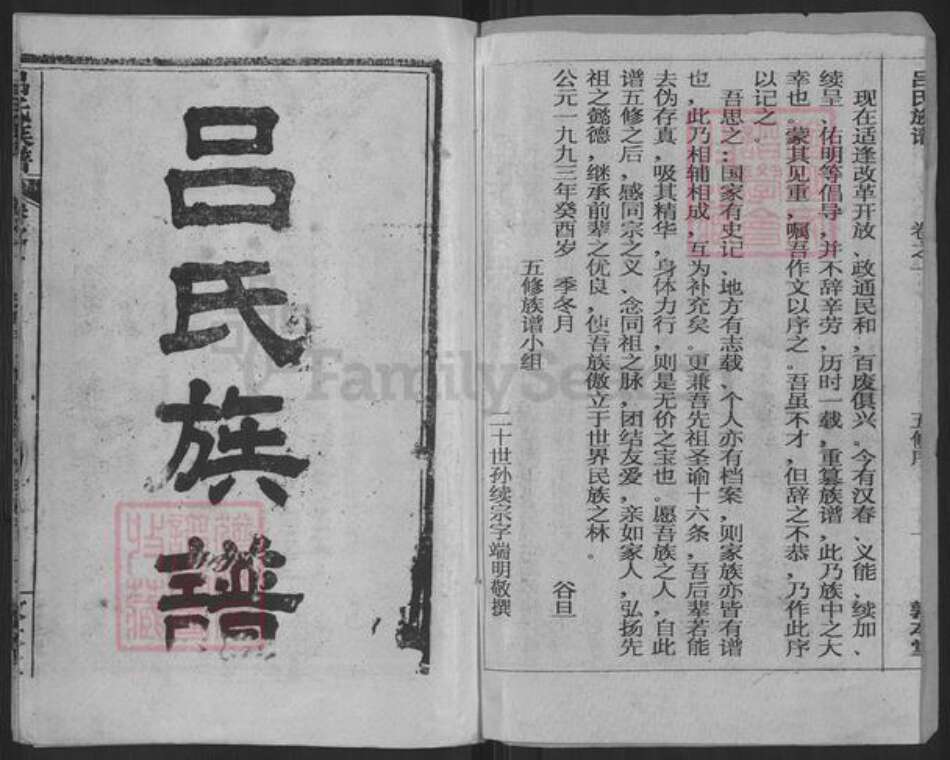 吕氏族谱 卷之一 五修序 一 敦本堂
现在适逢改革开放、政通民和，百废俱兴。今有汉春、义能、续加、
续呈、佑明等倡导，并不辞辛劳，历时一载，重篡族谱，此乃族中之大
幸也。蒙其见重，嘱吾作文以序之。吾虽不才，但辞之不恭，乃作此序
以记之。
吾思之：国家有史记、地方有志载、个人亦有档案，则家族亦皆有谱
也，此乃相辅相成，互为补充矣。更兼吾先祖圣谕十六条，吾后辈若能
去伪存真，吸其精华，身体力行，则是无价之宝也。愿吾族之人，自此
谱五修之后，感同宗之义、念同祖之脉，团结友爱，亲如家人，弘扬先
祖之懿德，继承前辈之优良，使吾族傲立于世界民族之林。
公元一九九三年癸酉岁 季冬月 谷旦
五修族谱小组
二十世孙续宗字端明敬撰
吕氏族譜
FamilySe